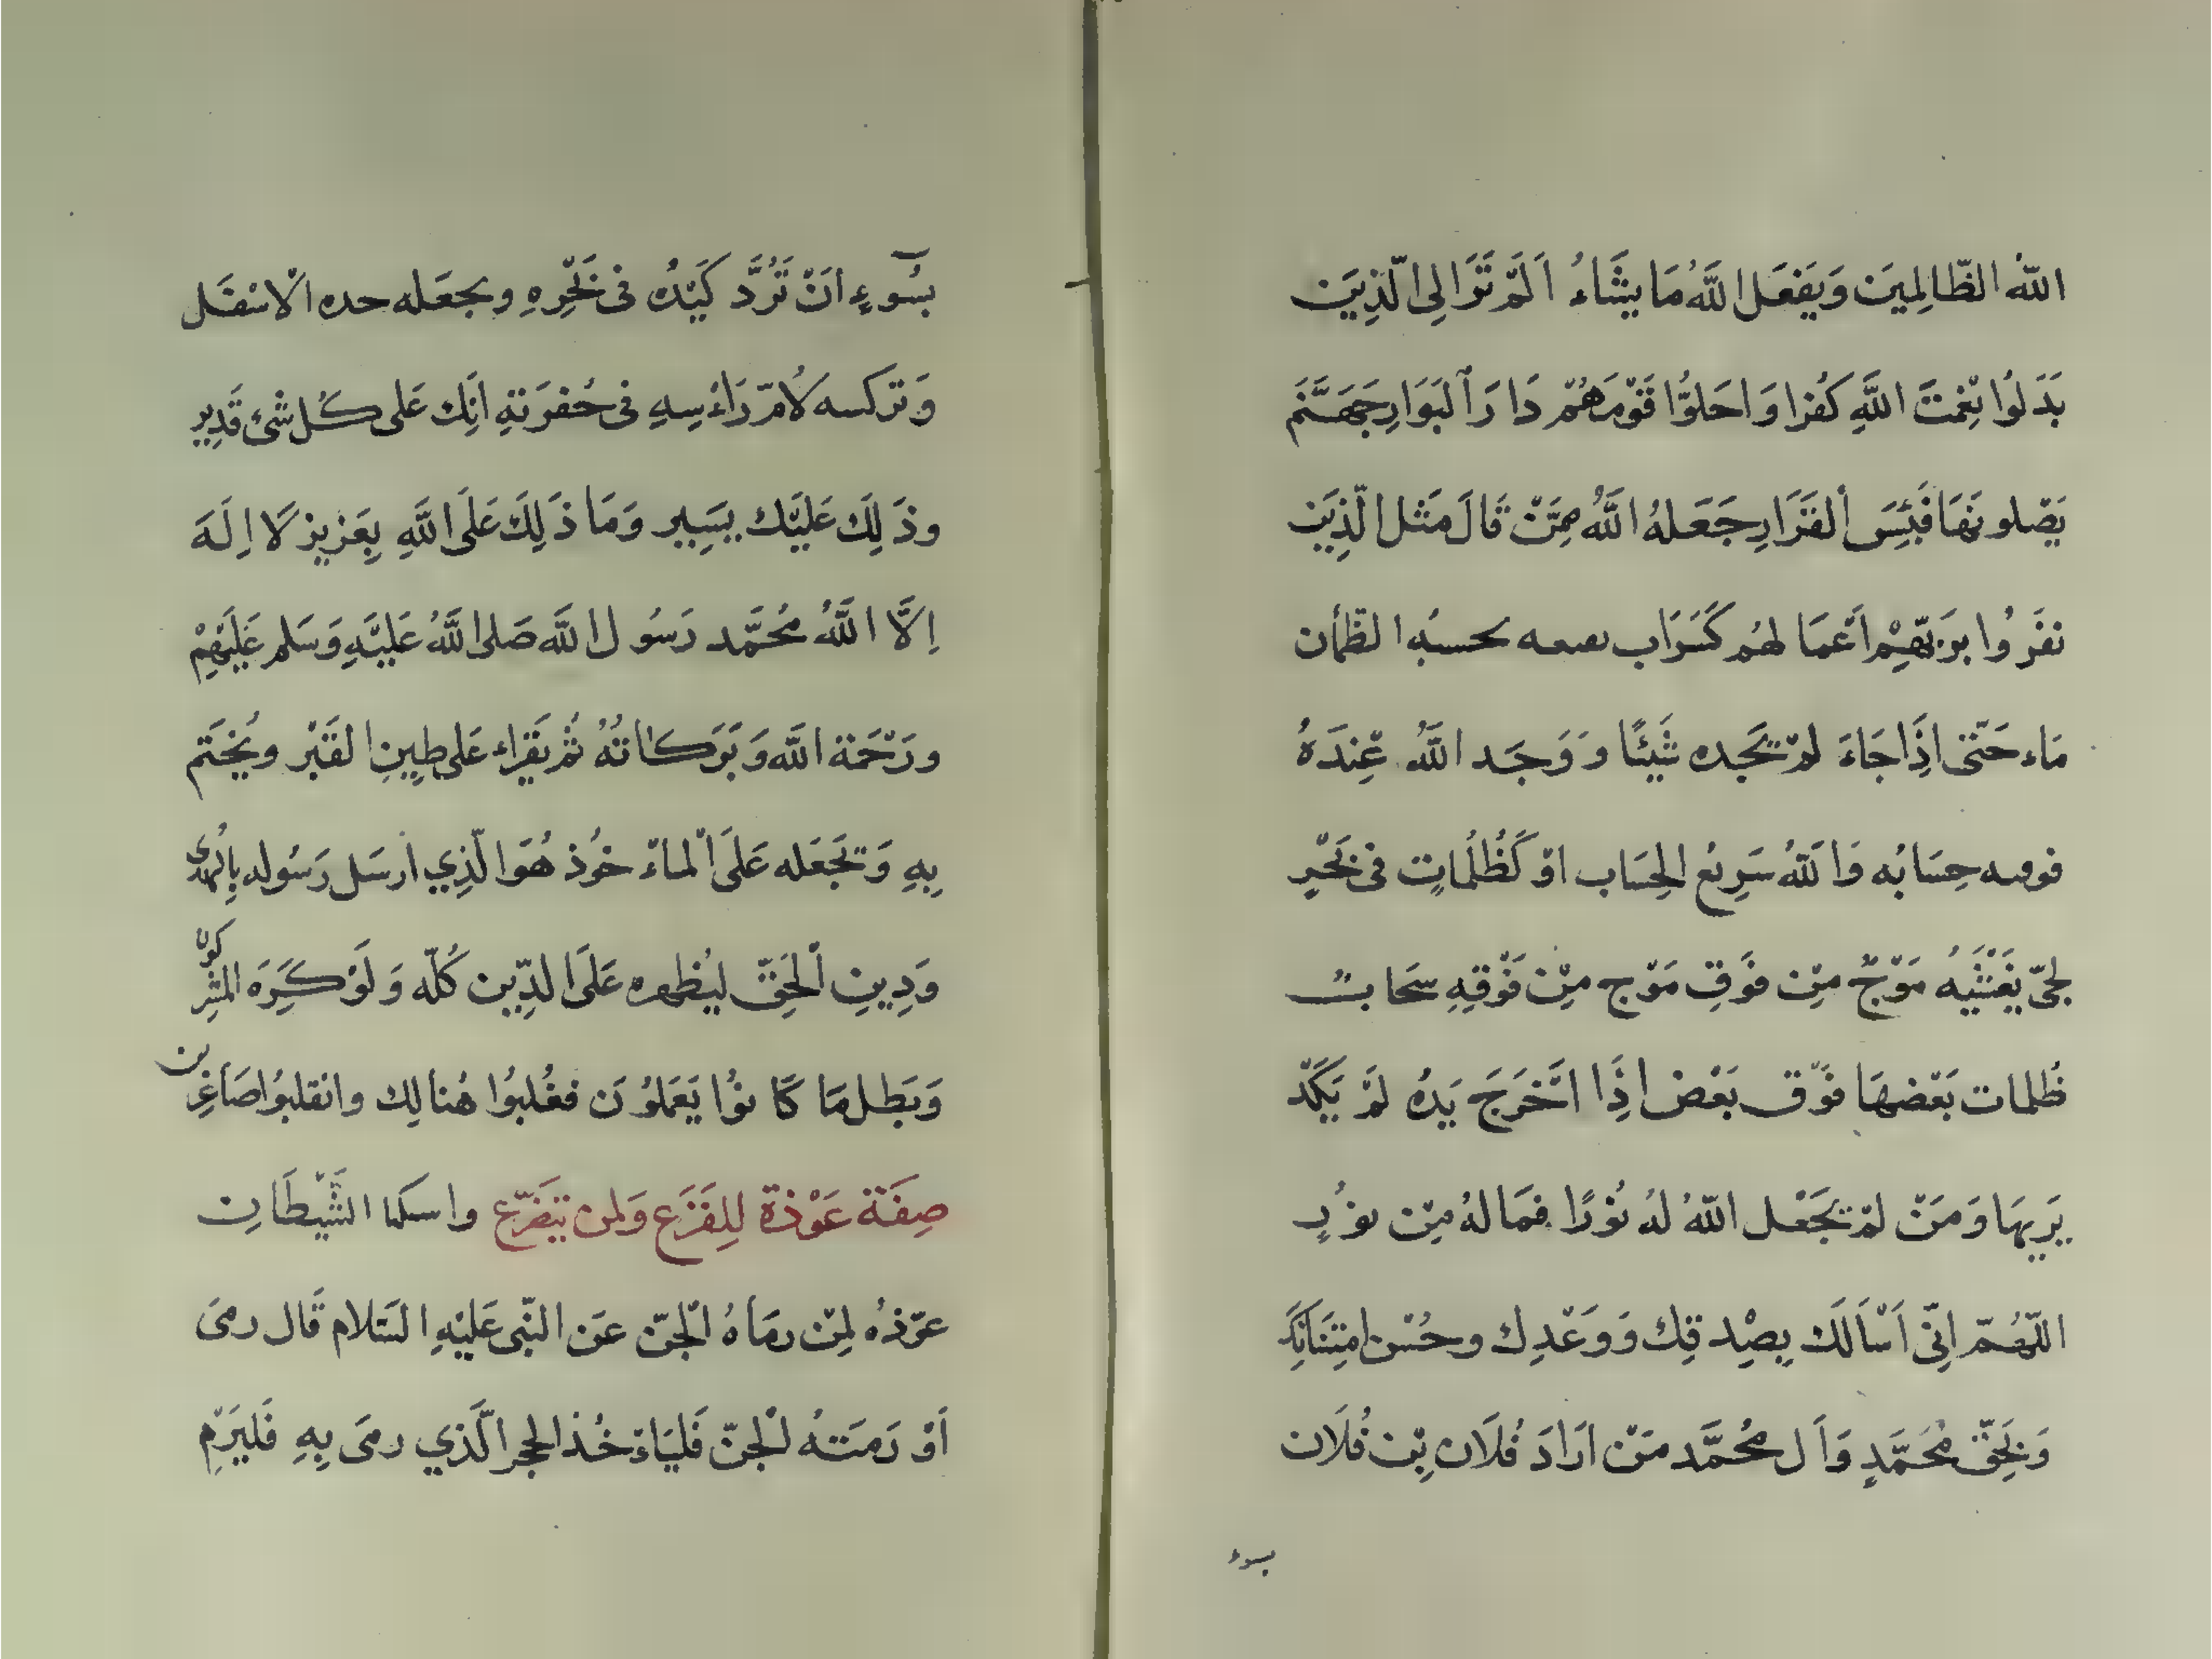 اللهُ الظّالِمِيَن وَيَفعَل اللَّهُ مَا يشَاءُ اَلَمّ تَرَ الِى الّذِيَن
بَدَلوُا نِعْمتَ اللَّهِ كَفُرا وَاحَلوُّا قَوْمَهُمْ دَارَ اَلبَوَارِ جَهَنَّمَ
يَصّلونَهَا فَبَئِسَ اْلقَرَارِ جَعَلهُ اللَّهُ مِمَّنْ قَالَ مَثل الّذِيَن
نفَرُوا برَبّهِمِ اَعمَا لهُم كَسَرَاب بقيعه يحسبُه الظّمأن
مَاء حَتىّ اِذَا جَاءَ لمْ يَجده شَيئًا وَوَجَد اللَّهُ عْنِدَهُ
فوفيه حِسَابُه وَاللّهُ سَرِيعُ الحِسَاب اوْ كَظُلُمَاتٍ فى بَحْرٍ
لجىّ يَغَشَيهُ مَوْجٌ مِنْ فوَقِ مَوْج مِنْ فَوْقِهِ سَحَابٌ
ظُلمات بَعْضهَا فوّق بَعْض اِذَا اَخَرجَ يَدهُ لمَّ يَكَدّ
يَرِيهَا وَمَنْ لمْ يَجَعْل اللّهُ لهُ نُورًا فمَا لهُ مِنْ نوُرٍ
اللّهُمّ اِنىّ اَسْاَلَكَ بِصِْدقِك وَوَعْدِك وحُسْن امِتِنَانِكَ
وَبِحَقّ مُحَمَّدٍ وَاَل مُحُمَّد مَنْ ارَادَ فُلَان بِْن فُلَان
بسوء
بسُوۤءٍ انَْ تَرُدَّ كَيْدُه فى نَحْرِهِ وبجعَله حده الاْسْفَل
وَتركسه لاُمّ رَاءْسِهِ فى حُفرَتهِ انِّك عَلى كُل شْئ قَدِير
وذَلِكَ عَليَْك بيَسِير وَمَا ذَلِكَ عَلَى اللَّهِ بِعَزيز لَا اِلَهَ
اِلاَّ اللَّهُ مُحمَّد رَسُول اللَّه صَلى اللَّهُ عَليَْهِ وَسَلم عَلَيْهِمْ
ورَحْمَة اللَّه وَبَرَكاتهُُ ثُمّ يقَراء عَلى طيِنِ القَبْر ويُختَم
بِهِ وَتجَعَله عَلىَ اْلماءْ خوُذ هُوَ الّذِي ارسَل رَسوُله باِلهُدى
وَدِينِ اْلحَقّ ليُظهره عَلىَ الدِّين كُلّه وَلَوْ كَرِهَ المشْرِكوُن
وَبَطل مَا كَا نوُا يَعَمَلوُن فغُلبُوا هُنالِك وانقلبوُا صَاغِرين
صِفَة عَوْذة لِلِفَزَع وَلمن يَتفَزّع واسكما الشَّيْطَان
عوّذه لِمْن رمَاهُ الْجنّ عَن النّبى عَليْهِ السَلام قَال رمىَ
اَوْ رَمَتهُ الْجنّ فَليَاءْخُذ الحجر الَّذي رمىَ بِهِ فَليَرْمِ